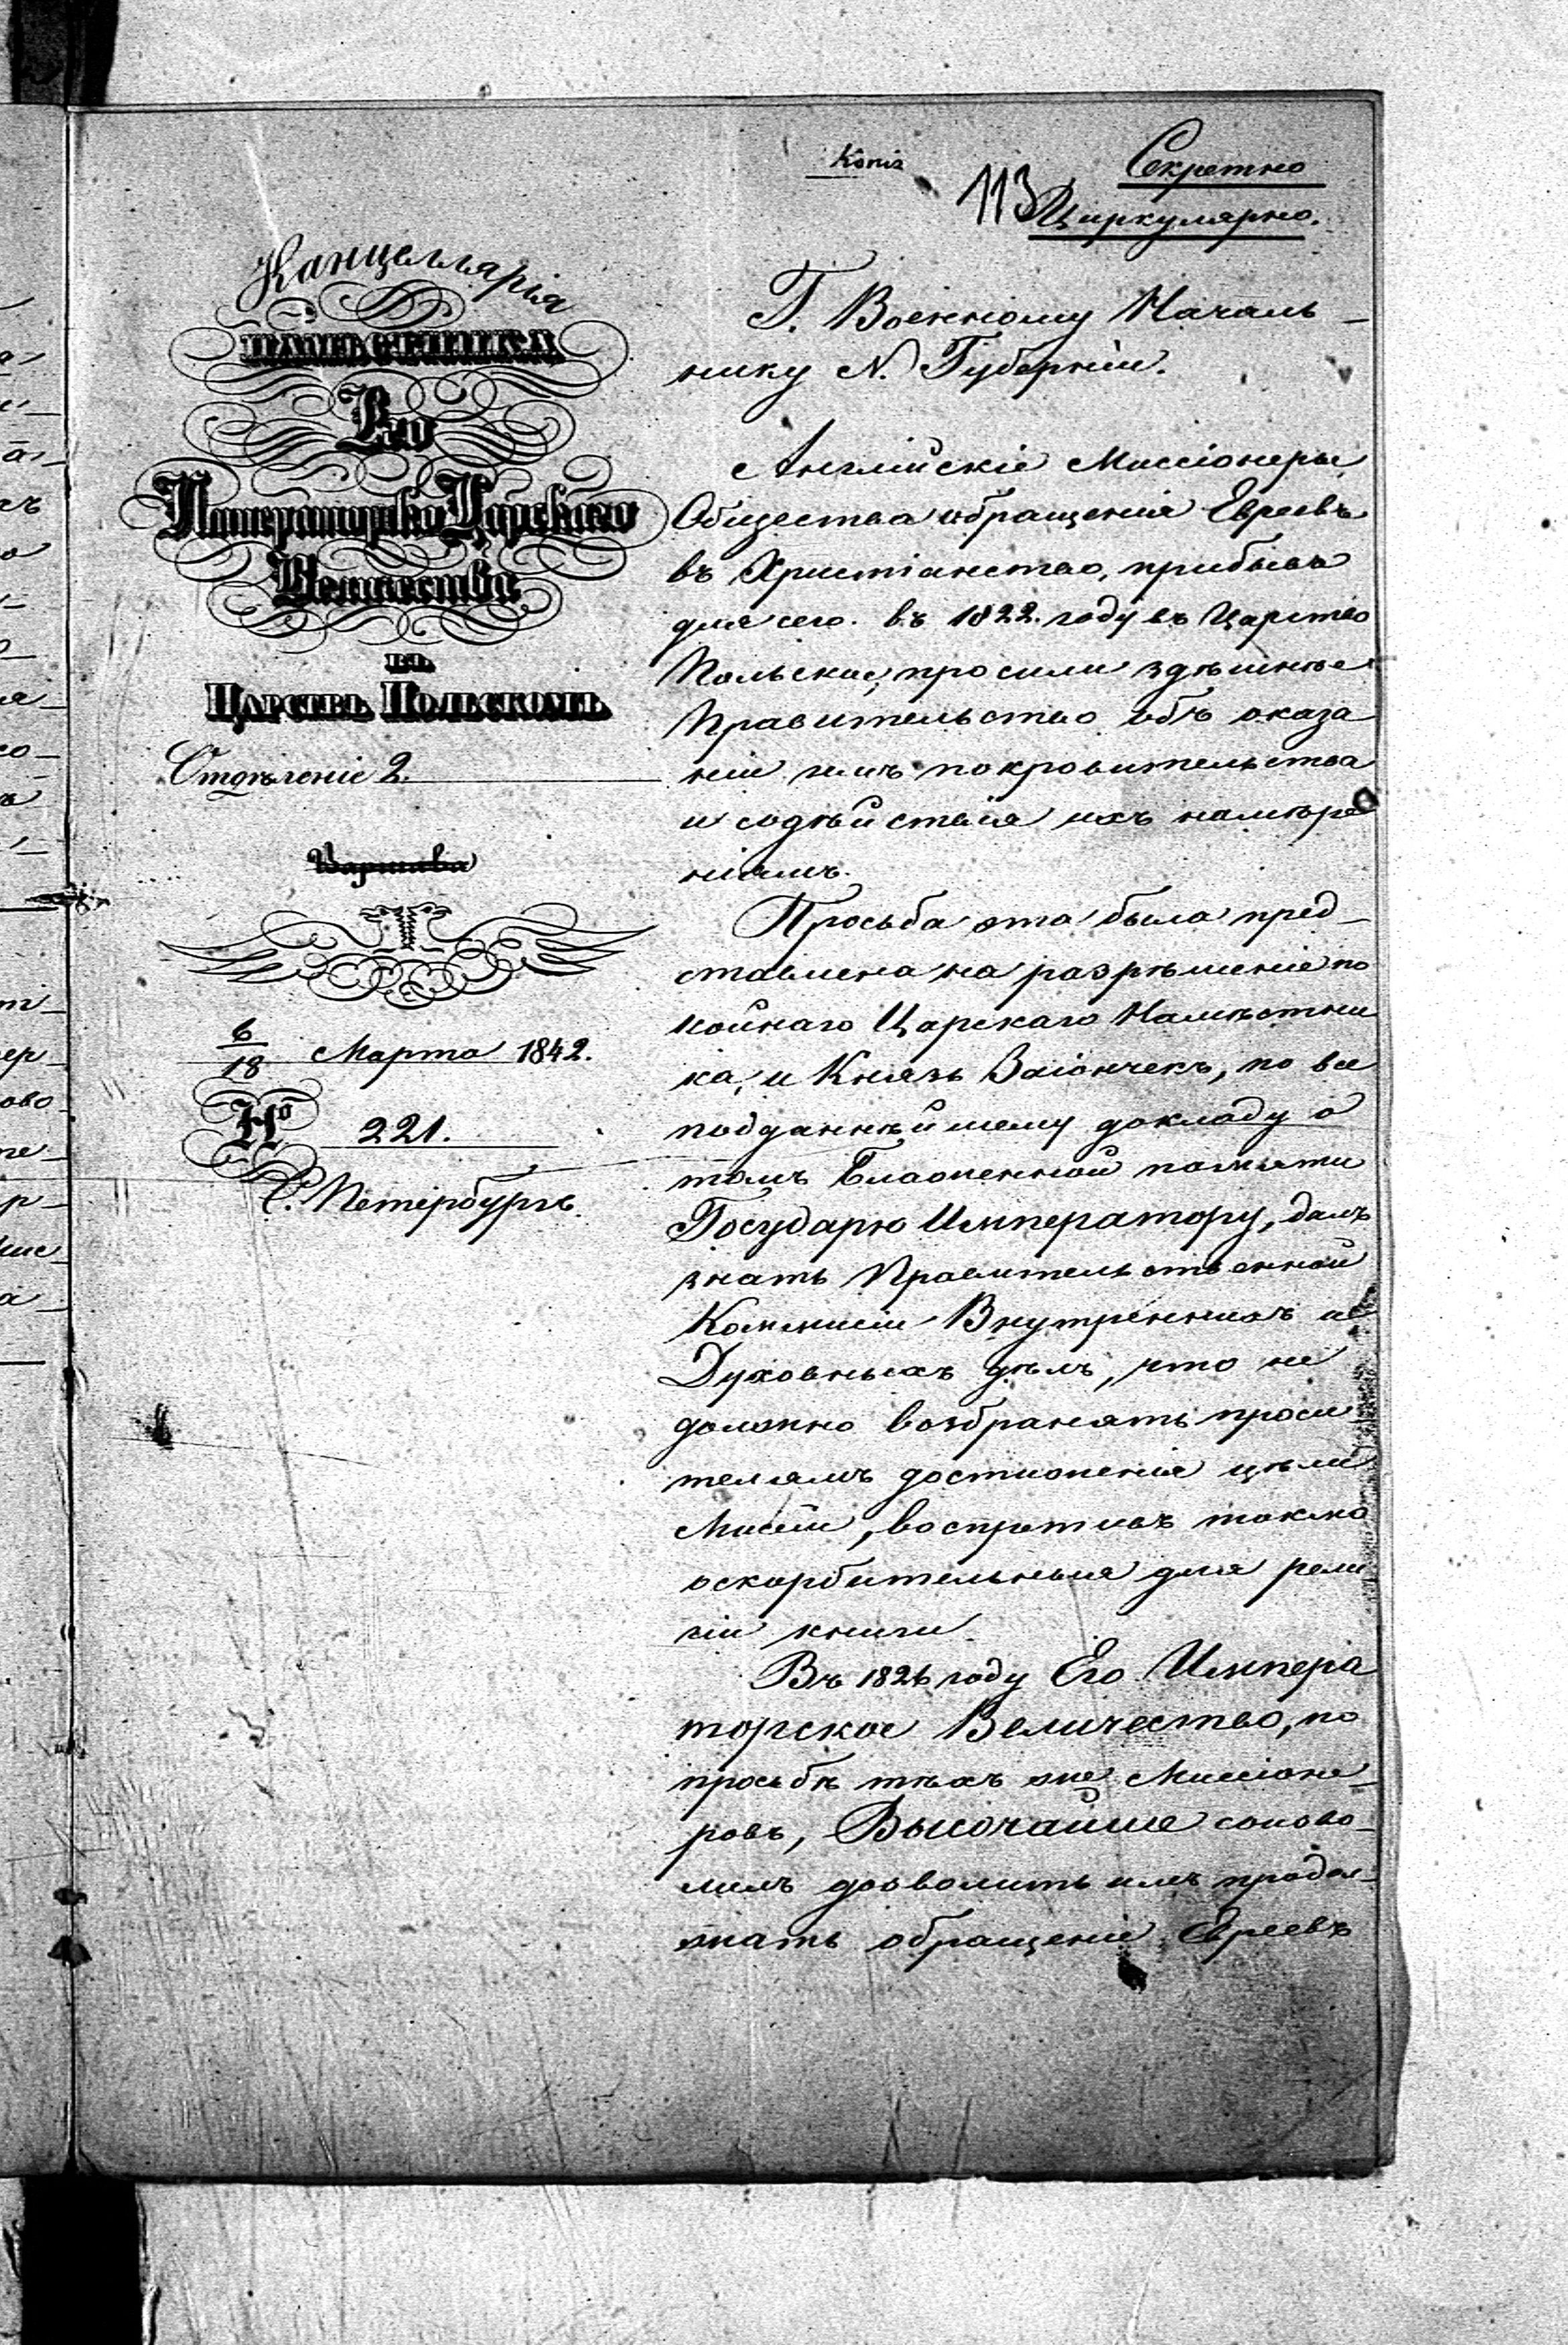 Копія
Секретно
113
Циркулярно.
Канцеллярія
НАМѢСТНИКА
Его
Императорско Царскаго
Величества
въ
Царствѣ Польскомъ
Отдѣленіе 2.
Варшава
6/18 Марта 1842.
№ 221.
С. Петербургъ.
Г. Военному Началь-
нику N. Губерніи.
Англійскіе Миссіонеры
Общества обращенія Евреевъ
въ Христіанство, прибывъ
для сего въ 1822 году въ Царство
Польское, просили здѣшнѣе
Правительство объ оказа
ніи имъ покровительства
и содѣйствія ихъ намѣре
ніямъ.
Просьба эта была пред-
ставлена на разрѣшеніе по
койнаго Царскаго Намѣстни
ка, и Князь Заіончекъ, по все
подданнѣйшему докладу о
томъ Блаженной памяти
Государю Императору, далъ
знать Правительственной
Коммисіи Внутреннихъ и
Духовныхъ дѣлъ, что не
должно возбранять проси
телямъ достиженія цѣли
Миссіи, воспретивъ токмо
оскорбительныя для рели
гіи книги.
Въ 1826 году Его Импера
торское Величество, по
просьбѣ тѣхъ же Миссіоне-
ровъ, Высочайше соизво-
лилъ дозволить имъ продол-
жать обращеніе Евреевъ